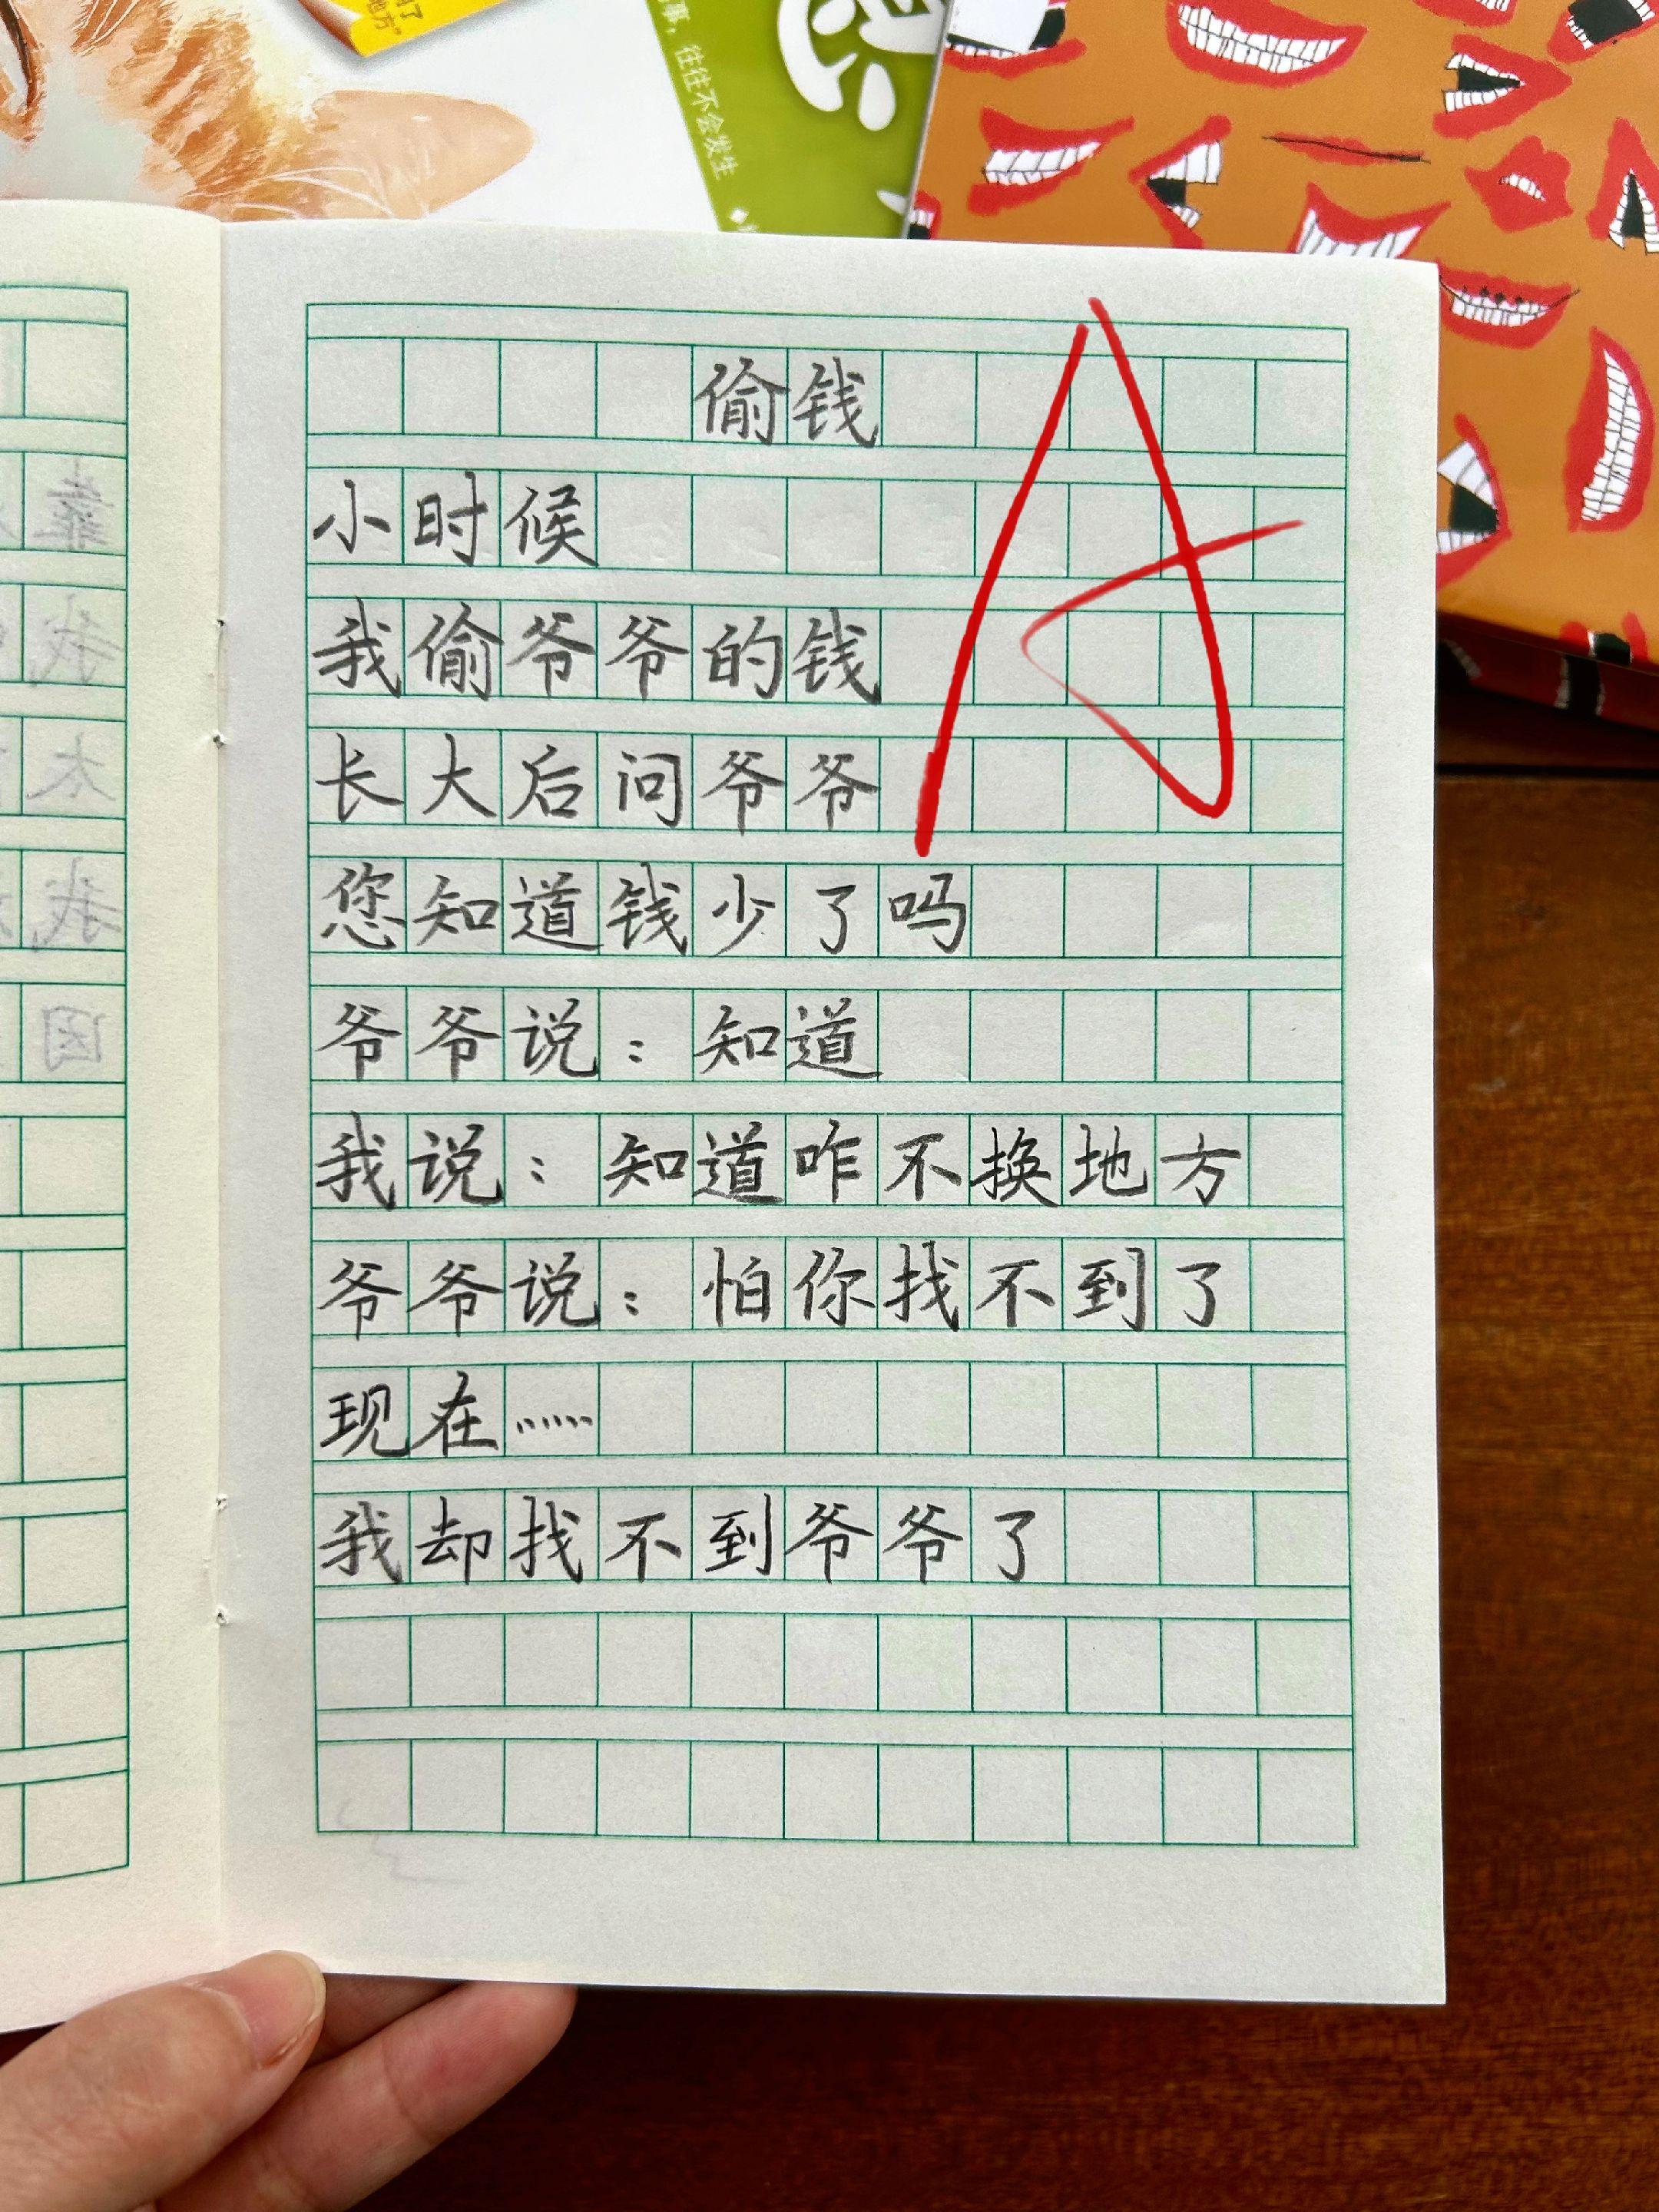 往往不会发生
偷钱
小时候
我偷爷爷的钱
长大后问爷爷
您知道钱少了吗
爷爷说：知道
我说：知道咋不换地方
爷爷说：怕你找不到了
现在……
我却找不到爷爷了
A